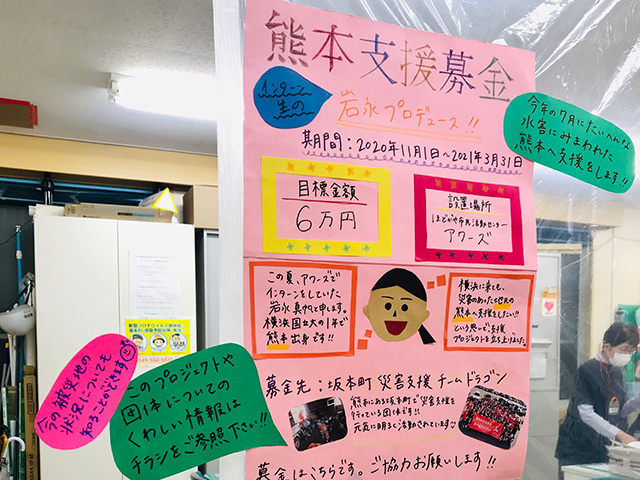 熊本支援募金
インターン
生の
岩永プロデュース!!
期間:2020年11月1日〜2021年3月31日
今年の7月にたいへんな
水害にみまわれた
熊本へ支援をします!!
目標金額
6万円
設置場所
ほどがや市民活動センター
アワーズ
この夏、アワーズで
インターンをしていた
岩永真帆と申します。
横浜国大の1年で
熊本出身です!!
横浜に来ても、
災害のあった地元の
熊本へ支援をしたい!!
という思いで支援
プロジェクトを立ち上げました。
募金先:坂本町災害支援チームドラゴン
熊本にある坂本町で災害支援を
行っている団体です!!
元気に明るく活動されています
今の被災地の
状況についても
知ることができます
このプロジェクトや
団体についての
くわしい情報は
チラシをご参照下さい!!
募金はこちらです。ご協力お願いします!!